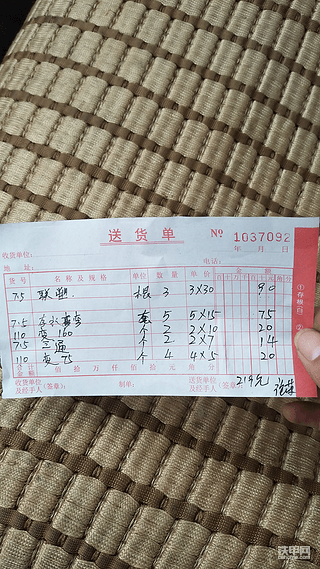 送货单 № 1037092
收货单位: 年 月 日
地 址: 电话:
货号 名称及规格 单位 数量 单价 金额
百 十 万 千 百 十 元 角 分
75 联塑 根 3 3×30 90
75 5 5×15 75
110 变 160 个 2 2×10 20
75 三通 个 2 2×7 14
110 变 75 个 4 4×5 20
合计金额 佰 拾 万 仟 佰 拾 元 角 分
收货单位及经手人(签章): 制单: 送货单位及经手人(签章): 219元
①存根白
铁甲网